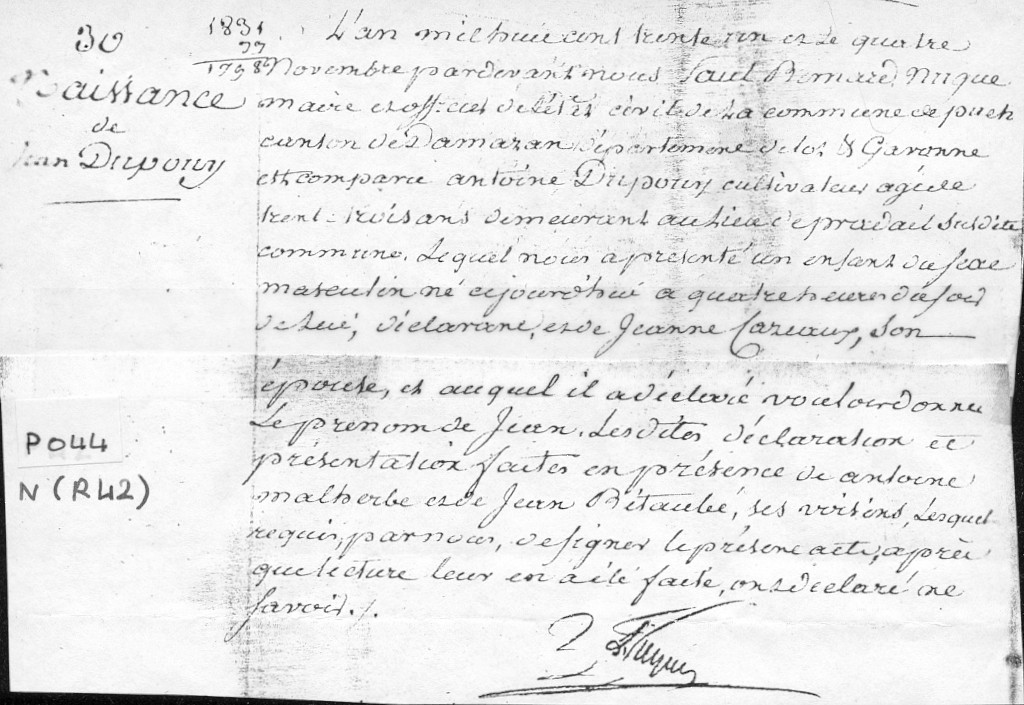 30
Naissance
de
Jean Dupouy
1831
33
1798
L'an mil huit cent trente un et le quatre
Novembre pardevant nous Paul Bernard Nuque
maire et officier de l'état civil de la commune de puch
canton de Damazan département de lot & Garonne
est comparu antoine Dupouy cultivateur agé de
trent-trois ans demeurant au lieu de pradail susdite
commune. Lequel nous a présenté un enfant du sexe
masculin né cejourd'hui a quatre heures du soir
de lui, déclarant, et de Jeanne Cazeaux, son
épouse, et auquel il a déclaré vouloir donner
Le prenom de Jean. Les dites déclaration et
présentation faites en présence de antoine
malherbe et de Jean Bitaubé, ses voisins, Lesquels
requis, par nous, de signer le présent acte, après
que lecture leur en a été faite, ont déclaré ne
savoir./.
P044
N (R42)